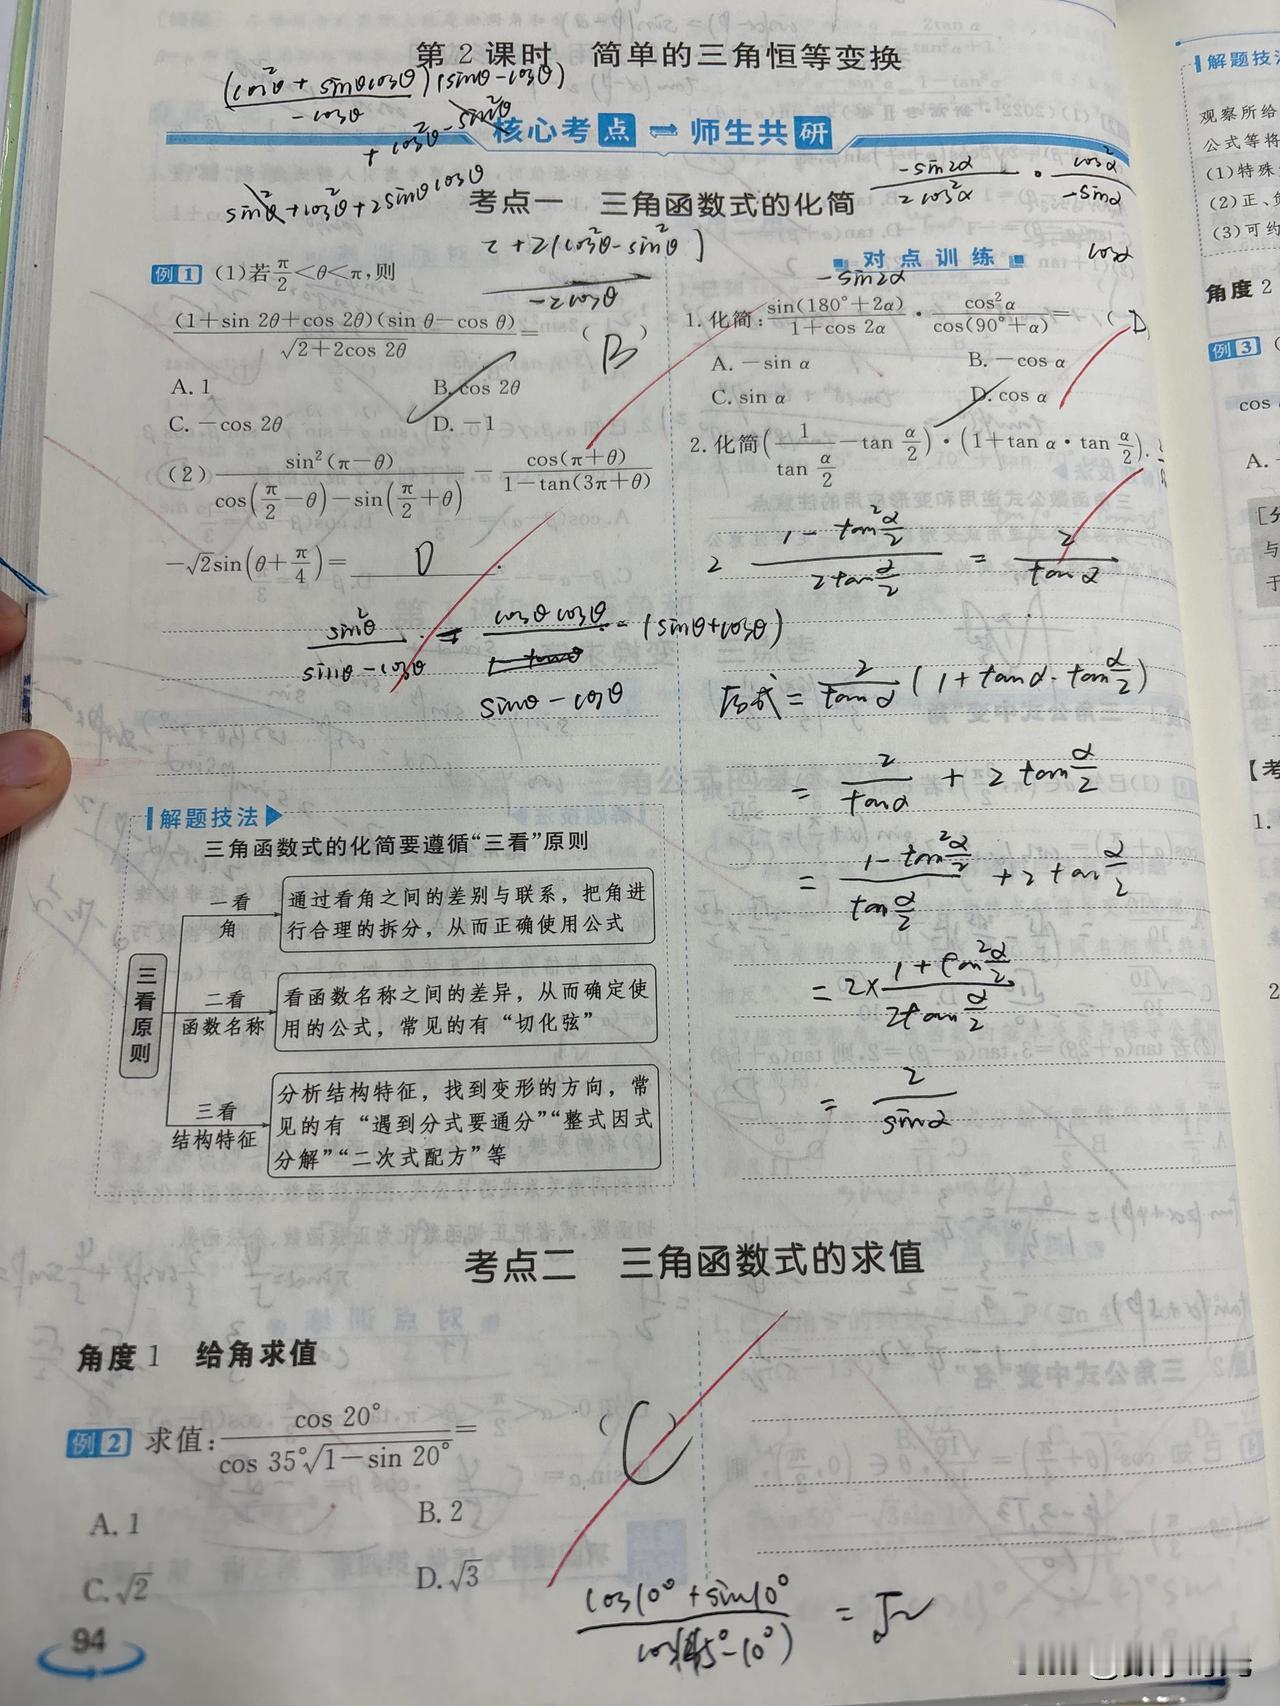 第2课时 简单的三角恒等变换
(cos²θ + sinθcosθ)(sinθ-cosθ)
-cosθ
+ cos²θ - sin²θ
核心考点 师生共研
sin²θ+cos²θ+2sinθcosθ
-sin2α / 2cos²α · cos²α / -sinα
考点一 三角函数式的化简
2+2(cos²θ-sin²θ)
-2cosθ
cosα
例1 (1)若π/2<θ<π,则
(1+sin 2θ+cos 2θ)(sin θ-cos θ) / √2+2cos 2θ = ( B )
A. 1 B. cos 2θ
C. -cos 2θ D. -1
(2) sin²(π-θ) / cos(π/2-θ)-sin(π/2+θ) - cos(π+θ) / 1-tan(3π+θ)
-√2sin(θ+π/4)= 0 .
sin²θ / sinθ-cosθ - cosθcosθ / sinθ-cosθ - (sinθ+cosθ)
解题技法
三角函数式的化简要遵循“三看”原则
三看原则
一看角
通过看角之间的差别与联系，把角进
行合理的拆分，从而正确使用公式
二看函数名称
看函数名称之间的差异，从而确定使
用的公式，常见的有“切化弦”
三看结构特征
分析结构特征，找到变形的方向，常
见的有“遇到分式要通分”“整式因式
分解”“二次式配方”等
对点训练
-sin2α
1. 化简: sin(180°+2α) / 1+cos 2α · cos²α / cos(90°+α) = ( D
A. -sin α B. -cos α
C. sin α D. cos α
2. 化简(1 / tan α/2 - tan α/2)·(1+tan α·tan α/2).
2 1-tan²α/2 / 2tanα/2 = 2 / tanα
原式 = 2/tanα (1+tanα·tanα/2)
= 2/tanα + 2tanα/2
= 1-tan²α/2 / tanα/2 + 2tanα/2
= 2× 1+tan²α/2 / 2tanα/2
= 2 / sinα
考点二 三角函数式的求值
角度1 给角求值
例2 求值: cos 20° / cos 35°√1-sin 20° = ( C )
A. 1 B. 2
C. √2 D. √3
cos10°+sin10° / cos(45°-10°) = √2
94
解题技
观察所给
公式等将
(1)特殊
(2)正、
(3)可约
角度2
例3
cos
A.
1.
2